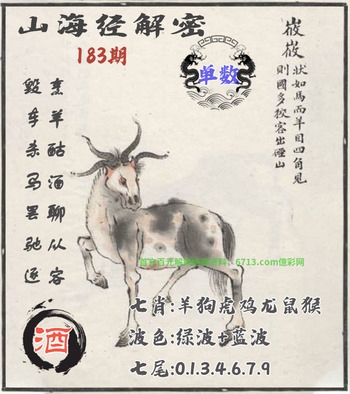 山海经解密
183期
单数
峳峳
状如馬而羊目四角見
則國多狡客出硜山
烹羊酤酒聊从容
毁车杀马罢驰逐
6713.com億彩网
酒
七肖:羊狗虎鸡龙鼠猴
波色:绿波+蓝波
七尾:0.1.3.4.6.7.9